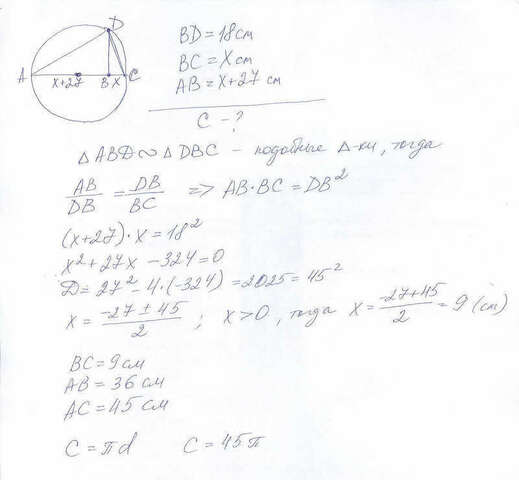 D
A x+27 B x C
BD = 18 см
BC = x см
AB = x+27 см
C - ?
△ABD ∾ △DBC - подобные △-ки, тогда
AB/DB = DB/BC => AB·BC = DB²
(x+27)·x = 18²
x² + 27x - 324 = 0
D = 27² - 4·(-324) = 2025 = 45²
x = (-27 ± 45)/2 ; x > 0, тогда x = (-27+45)/2 = 9 (см)
BC = 9 см
AB = 36 см
AC = 45 см
C = πd C = 45π